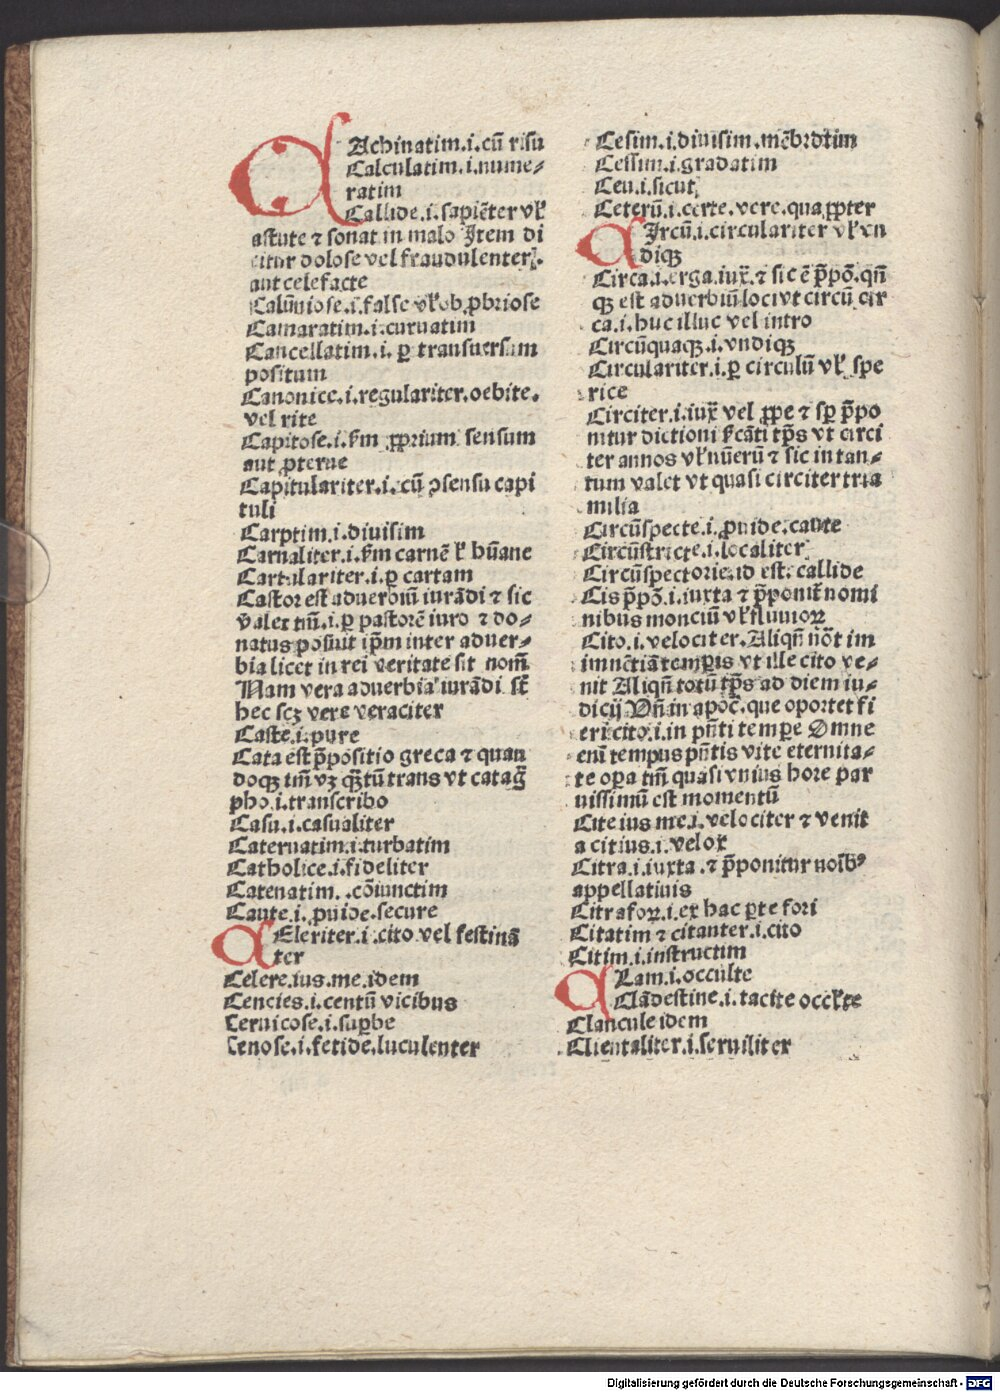 CAchinatim.i.cū risu
Calculatim.i.nume-
ratim
Callide.i.sapiēter vł
astute ⁊ sonat in malo Item di
citur dolose vel fraudulenter.
aut celefacte
Calūniose.i.false vł ob ꝓbriose
Camaratim.i.curuatim
Cancellatim.i.ꝑ transuersum
positum
Canonice.i.regulariter.debite.
vel rite
Capitose.i.ẜm ꝓprium sensum
aut ꝓterue
Capitulariter.i.cū ꝯsensu capi
tuli
Carptim.i.diuisim
Carnaliter.i.ẜm carnē ł hūane
Cartulariter.i.ꝑ cartam
Castor est aduerbiū iurādi ⁊ sic
valet tm̄.i.ꝑ pastorē iuro ⁊ do-
natus posuit ip̄m inter aduer-
bia licet in rei veritate sit nom̄
Nam vera aduerbia iurādi st̄
hec scꝫ vere veraciter
Caste.i.pure
Cata est p̄positio greca ⁊ quan
doqꝫ tm̄ vꝫ q̄tū trans vt catag̃
pho.i.transcribo
Casu.i.casualiter
Cateruatim.i.turbatim
Catholice.i.fideliter
Catenatim..cōiunctim
Caute.i.ꝓuide.secure
CEleriter.i.cito vel festinā
ter
Celere.ius.me.idem
Cencies.i.centū vicibus
Ceruicose.i.suꝑbe
Cenose.i.fetide.luculenter
Cesim.i.diuisim.mēbratim
Cessim.i.gradatim
Ceu.i.sicut
Ceterū.i.certe.vere.qua ꝓpter
CIrcū.i.circulariter vł vn
diqꝫ
Circa.i.erga.iux̄.⁊ sic ē p̄pō.qn̄
qꝫ est aduerbiū loci vt circū cir
ca.i.huc illuc vel intro
Circūquaqꝫ.i.vndiqꝫ
Circulariter.i.ꝑ circulū vł spe
rice
Circiter.i.iux̄ vel ꝓpe ⁊ sꝑ p̄po
nitur dictioni ẜcāti tp̄s vt circi
ter annos vł nūerū ⁊ sic in tan-
tum valet vt quasi circiter tria
milia
Circūspecte.i.ꝓuide.caute
Circūstricte.i.localiter
Circūspectorie.id est.callide
Cis p̄pō.i.iuxta ⁊ p̄ponit̄ nomi
nibus monciū vł fluuioꝝ
Cito.i.velociter.Aliqn̄ nōt im
imnētiā temꝑis vt ille cito ve-
nit Aliqn̄ totū tp̄s ad diem iu-
dicij Vn̄ in apoc̄.que oportet fi
eri cito.i.in pn̄ti temꝑe Omne
enī tempus pn̄tis vite eternita-
te oꝑa tm̄ quasi vnius hore par
uissimū est momentū
Cite ius me.i.velociter ⁊ venit
a citius.i.velox̄
Citra.i.iuxta.⁊ p̄ponitur noībꝰ
appellatiuis
Citra foꝝ.i.ex hac ꝑte fori
Citatim ⁊ citanter.i.cito
Citim.i.instructim
CLam.i.occulte
Clādestine.i.tacite occłte
Clancule idem
Clientaliter.i.seruiliter
Digitalisierung gefördert durch die Deutsche Forschungsgemeinschaft - DFG